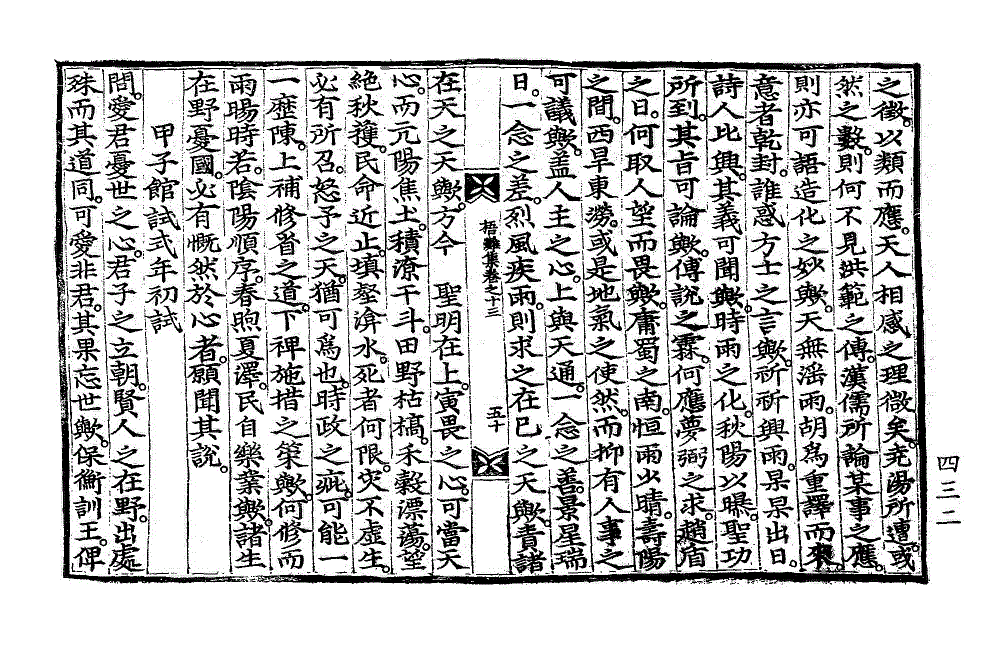 之徵。以類而應。天人相感之理微矣。堯湯所遭。或
然之數。則何不見洪範之傳。漢儒所論某事之應。
則亦可語造化之妙歟。天無淫雨。胡爲重譯而來。
意者乾封。誰惑方士之言歟。祈祈興雨。杲杲出日。
詩人比興。其義可聞歟。時雨之化。秋陽以曝。聖功
所到。其旨可論歟。傅說之霖。何應夢弼之求。趙盾
之日。何取人望而畏歟。庸蜀之南。恒雨少晴。壽陽
之間。西旱東澇。或是地氣之使然。而抑有人事之
可議歟。盖人主之心。上與天通。一念之善。景星瑞
日。一念之差。烈風疾雨。則求之在已之天歟。責諸
梧灘集卷之十三
五十
在天之天歟。方今　聖明在上。寅畏之心。可當天
心。而亢陽焦土。積潦干斗。田野枯槁。禾穀漂蕩。望
絶秋穫。民命近止。塡壑渰水。死者何限。灾不虛生。
必有所召。怒予之天。猶可爲也。時政之疵。可能一
一歷陳。上補修省之道。下裨施措之策歟。何修而
雨暘時若。陰陽順序。春煦夏澤。民自樂業歟。諸生
在野憂國。必有慨然於心者。願聞其說。
甲子館試式年初試
問。愛君憂世之心。君子之立朝。賢人之在野。出處
殊而其道同。可愛非君。其果忘世歟。保衡訓王。俾
四三二